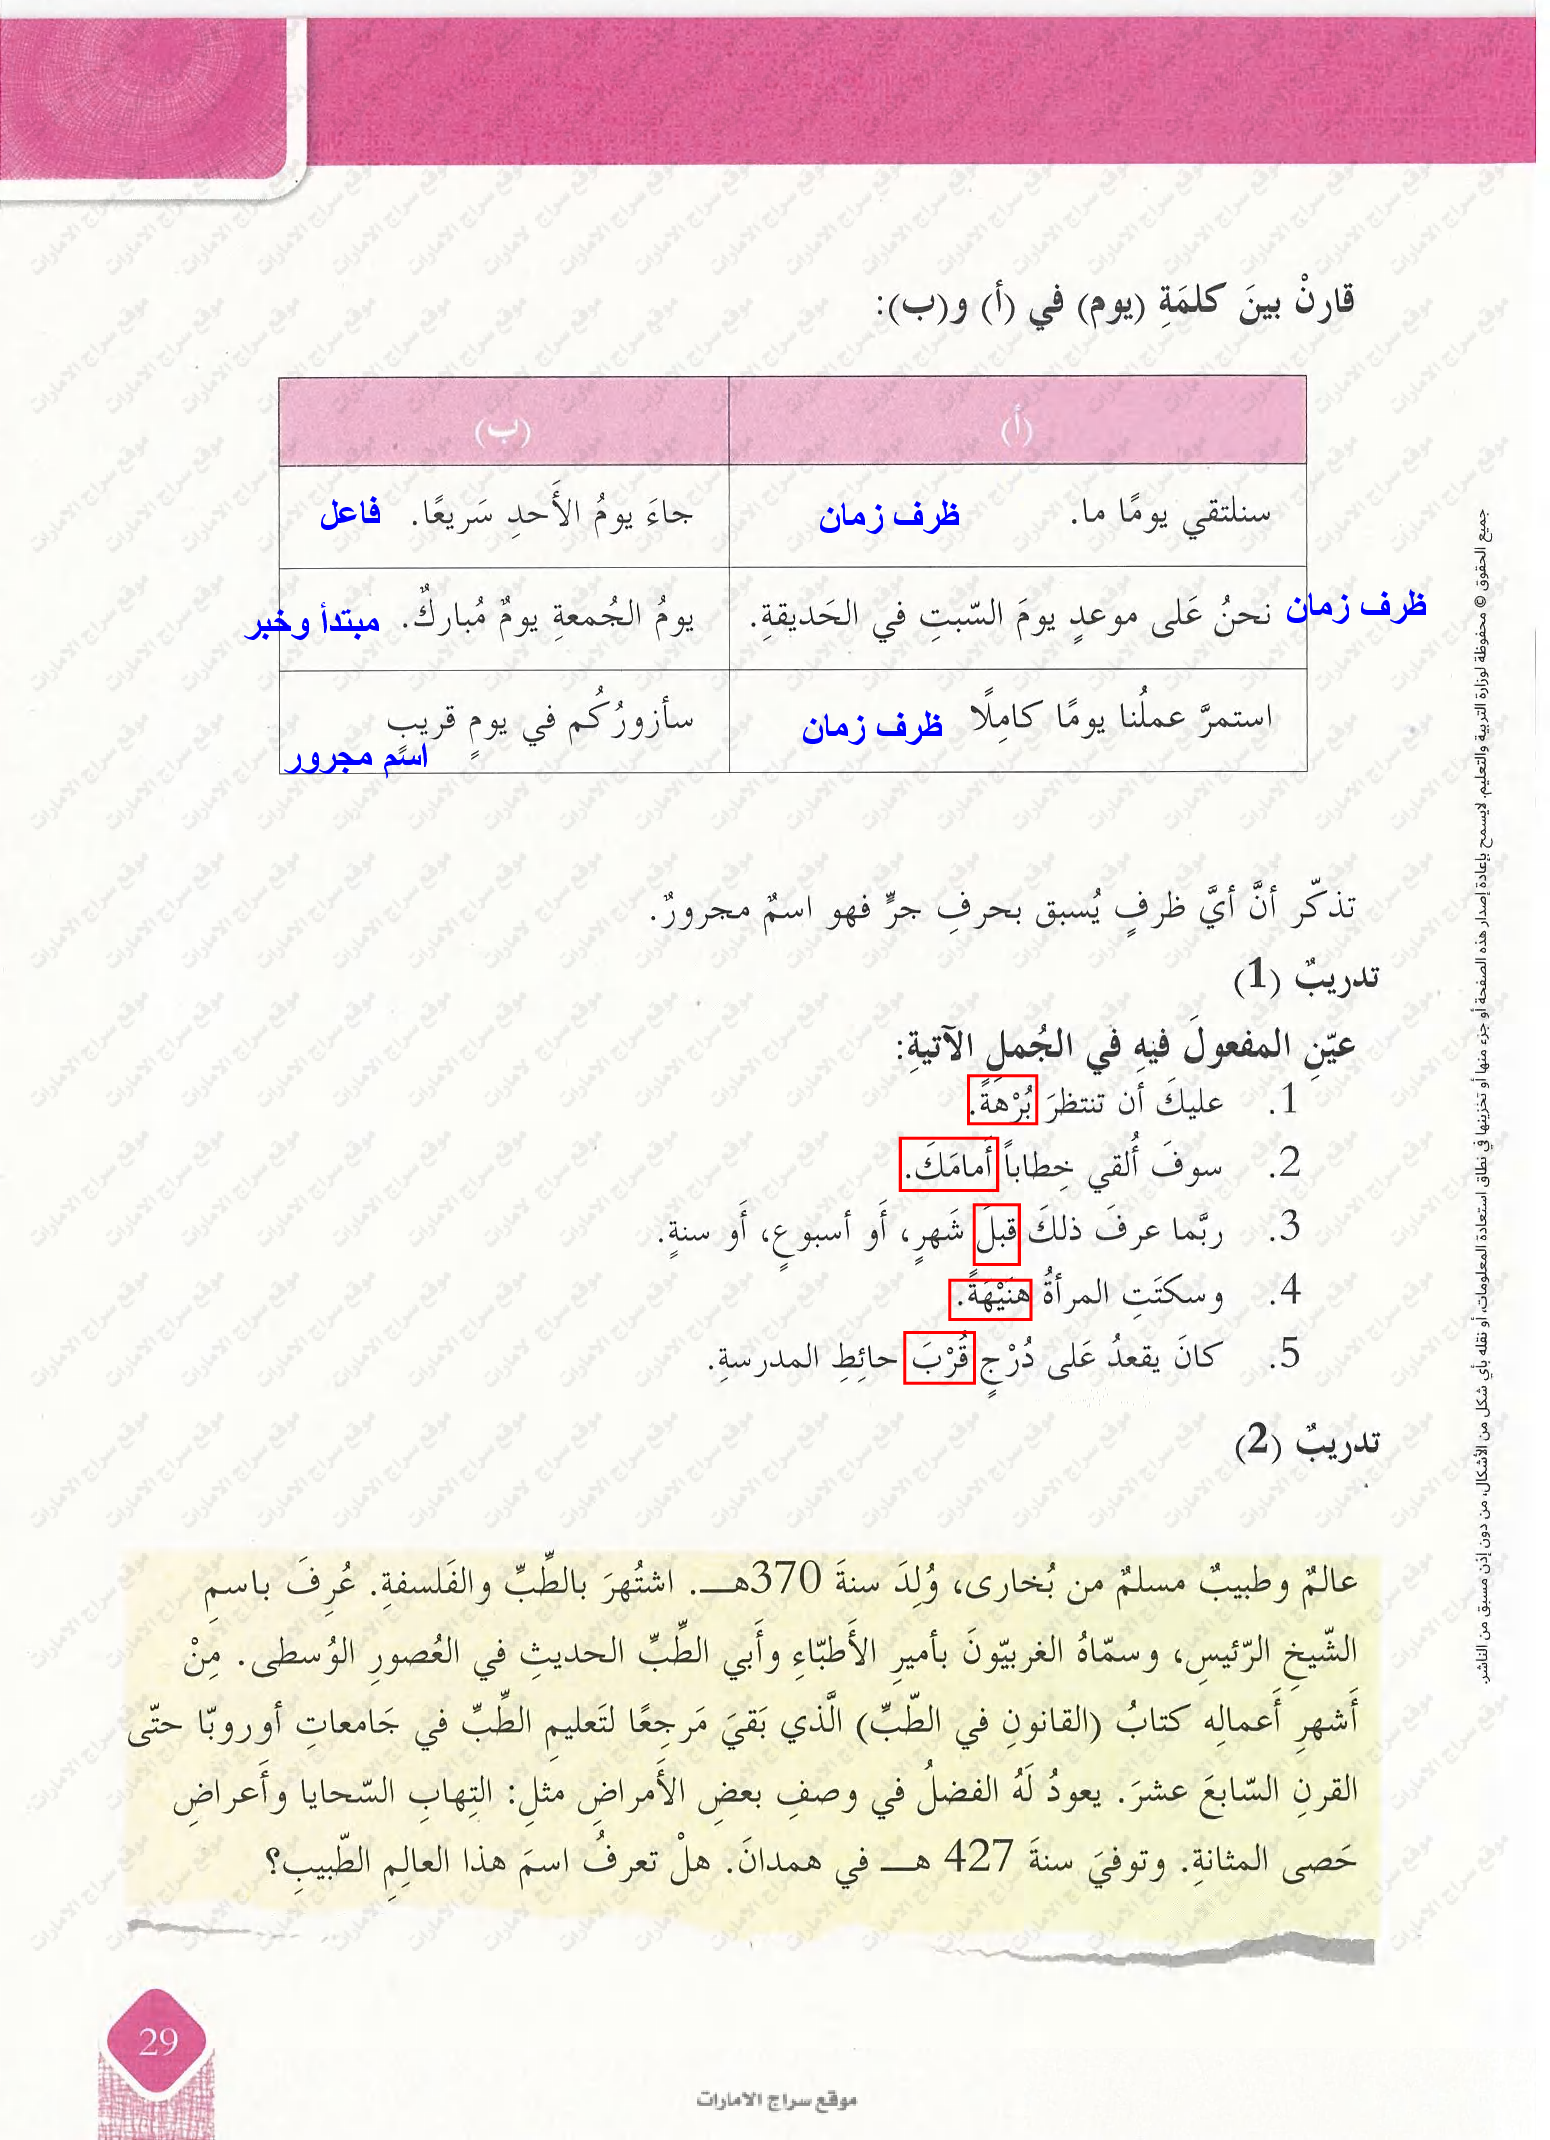 قارنْ بينَ كلمَةِ (يوم) في (أ) و(ب):
(أ) (ب)
سنلتقي يومًا ما. ظرف زمان جاءَ يومُ الأَحدِ سَريعًا. فاعل
ظرف زمان نحنُ عَلى موعدٍ يومَ السّبتِ في الحَديقةِ. يومُ الجُمعةِ يومٌ مُباركٌ. مبتدأ وخبر
استمرَّ عملُنا يومًا كامِلًا ظرف زمان سأزورُكُم في يومٍ قريبٍ
اسم مجرور
تذكّر أنَّ أيَّ ظرفٍ يُسبق بحرفِ جرٍّ فهو اسمٌ مجرورٌ.
تدريبٌ (1)
عيّنِ المفعولَ فيهِ في الجُملِ الآتيةِ:
1. عليكَ أن تنتظرَ بُرْهَةً.
2. سوفَ أُلقي خِطاباً أَمامَكَ.
3. ربَّما عرفَ ذلكَ قبلَ شَهرٍ، أَو أسبوعٍ، أَو سنةٍ.
4. وسكتَتِ المرأةُ هنَيْهَةً.
5. كانَ يقعدُ عَلى دُرْجٍ قُرْبَ حائِطِ المدرسةِ.
تدريبٌ (2)
عالمٌ وطبيبٌ مسلمٌ من بُخارى، وُلِدَ سنةَ 370هـ. اشتُهرَ بالطِّبِّ والفَلسفةِ. عُرِفَ باسمِ
الشّيخِ الرّئيسِ، وسمّاهُ الغربيّونَ بأميرِ الأَطبّاءِ وأَبي الطِّبِّ الحديثِ في العُصورِ الوُسطى. مِنْ
أَشهرِ أَعمالِه كتابُ (القانونِ في الطّبِّ) الَّذي بَقيَ مَرجِعًا لتَعليمِ الطِّبِّ في جَامعاتِ أوروبّا حتّى
القرنِ السّابعَ عشرَ. يعودُ لَهُ الفضلُ في وصفِ بعضِ الأَمراضِ مثلِ: التِهابِ السّحايا وأَعراضِ
حَصى المثانةِ. وتوفيَ سنةَ 427 هـ في همدانَ. هلْ تعرفُ اسمَ هذا العالِمِ الطّبيبِ؟
جميع الحقوق © محفوظة لوزارة التربية والتعليم. لايسمح بإعادة إصدار هذه الصفحة أو جزء منها أو تخزينها في نطاق استعادة المعلومات، أو نقله بأي شكل من الأشكال، من دون إذن مسبق من الناشر.
29
موقع سراج الامارات